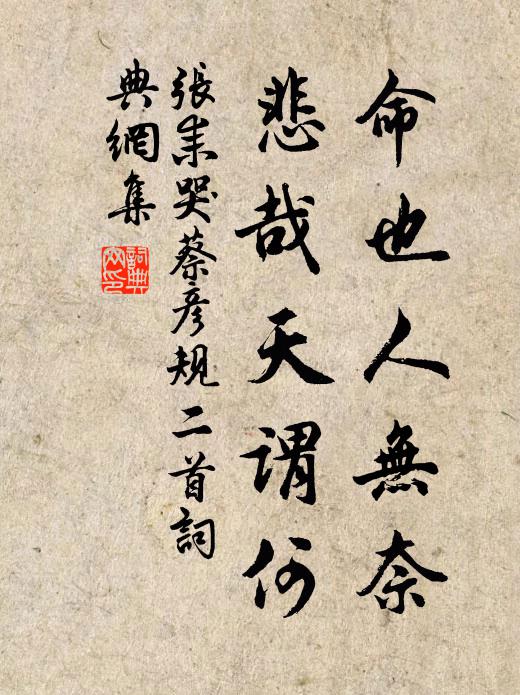 命也人無奈
悲哉天謂何
張耒哭蔡彥規二首詞
典網集
詞典網印